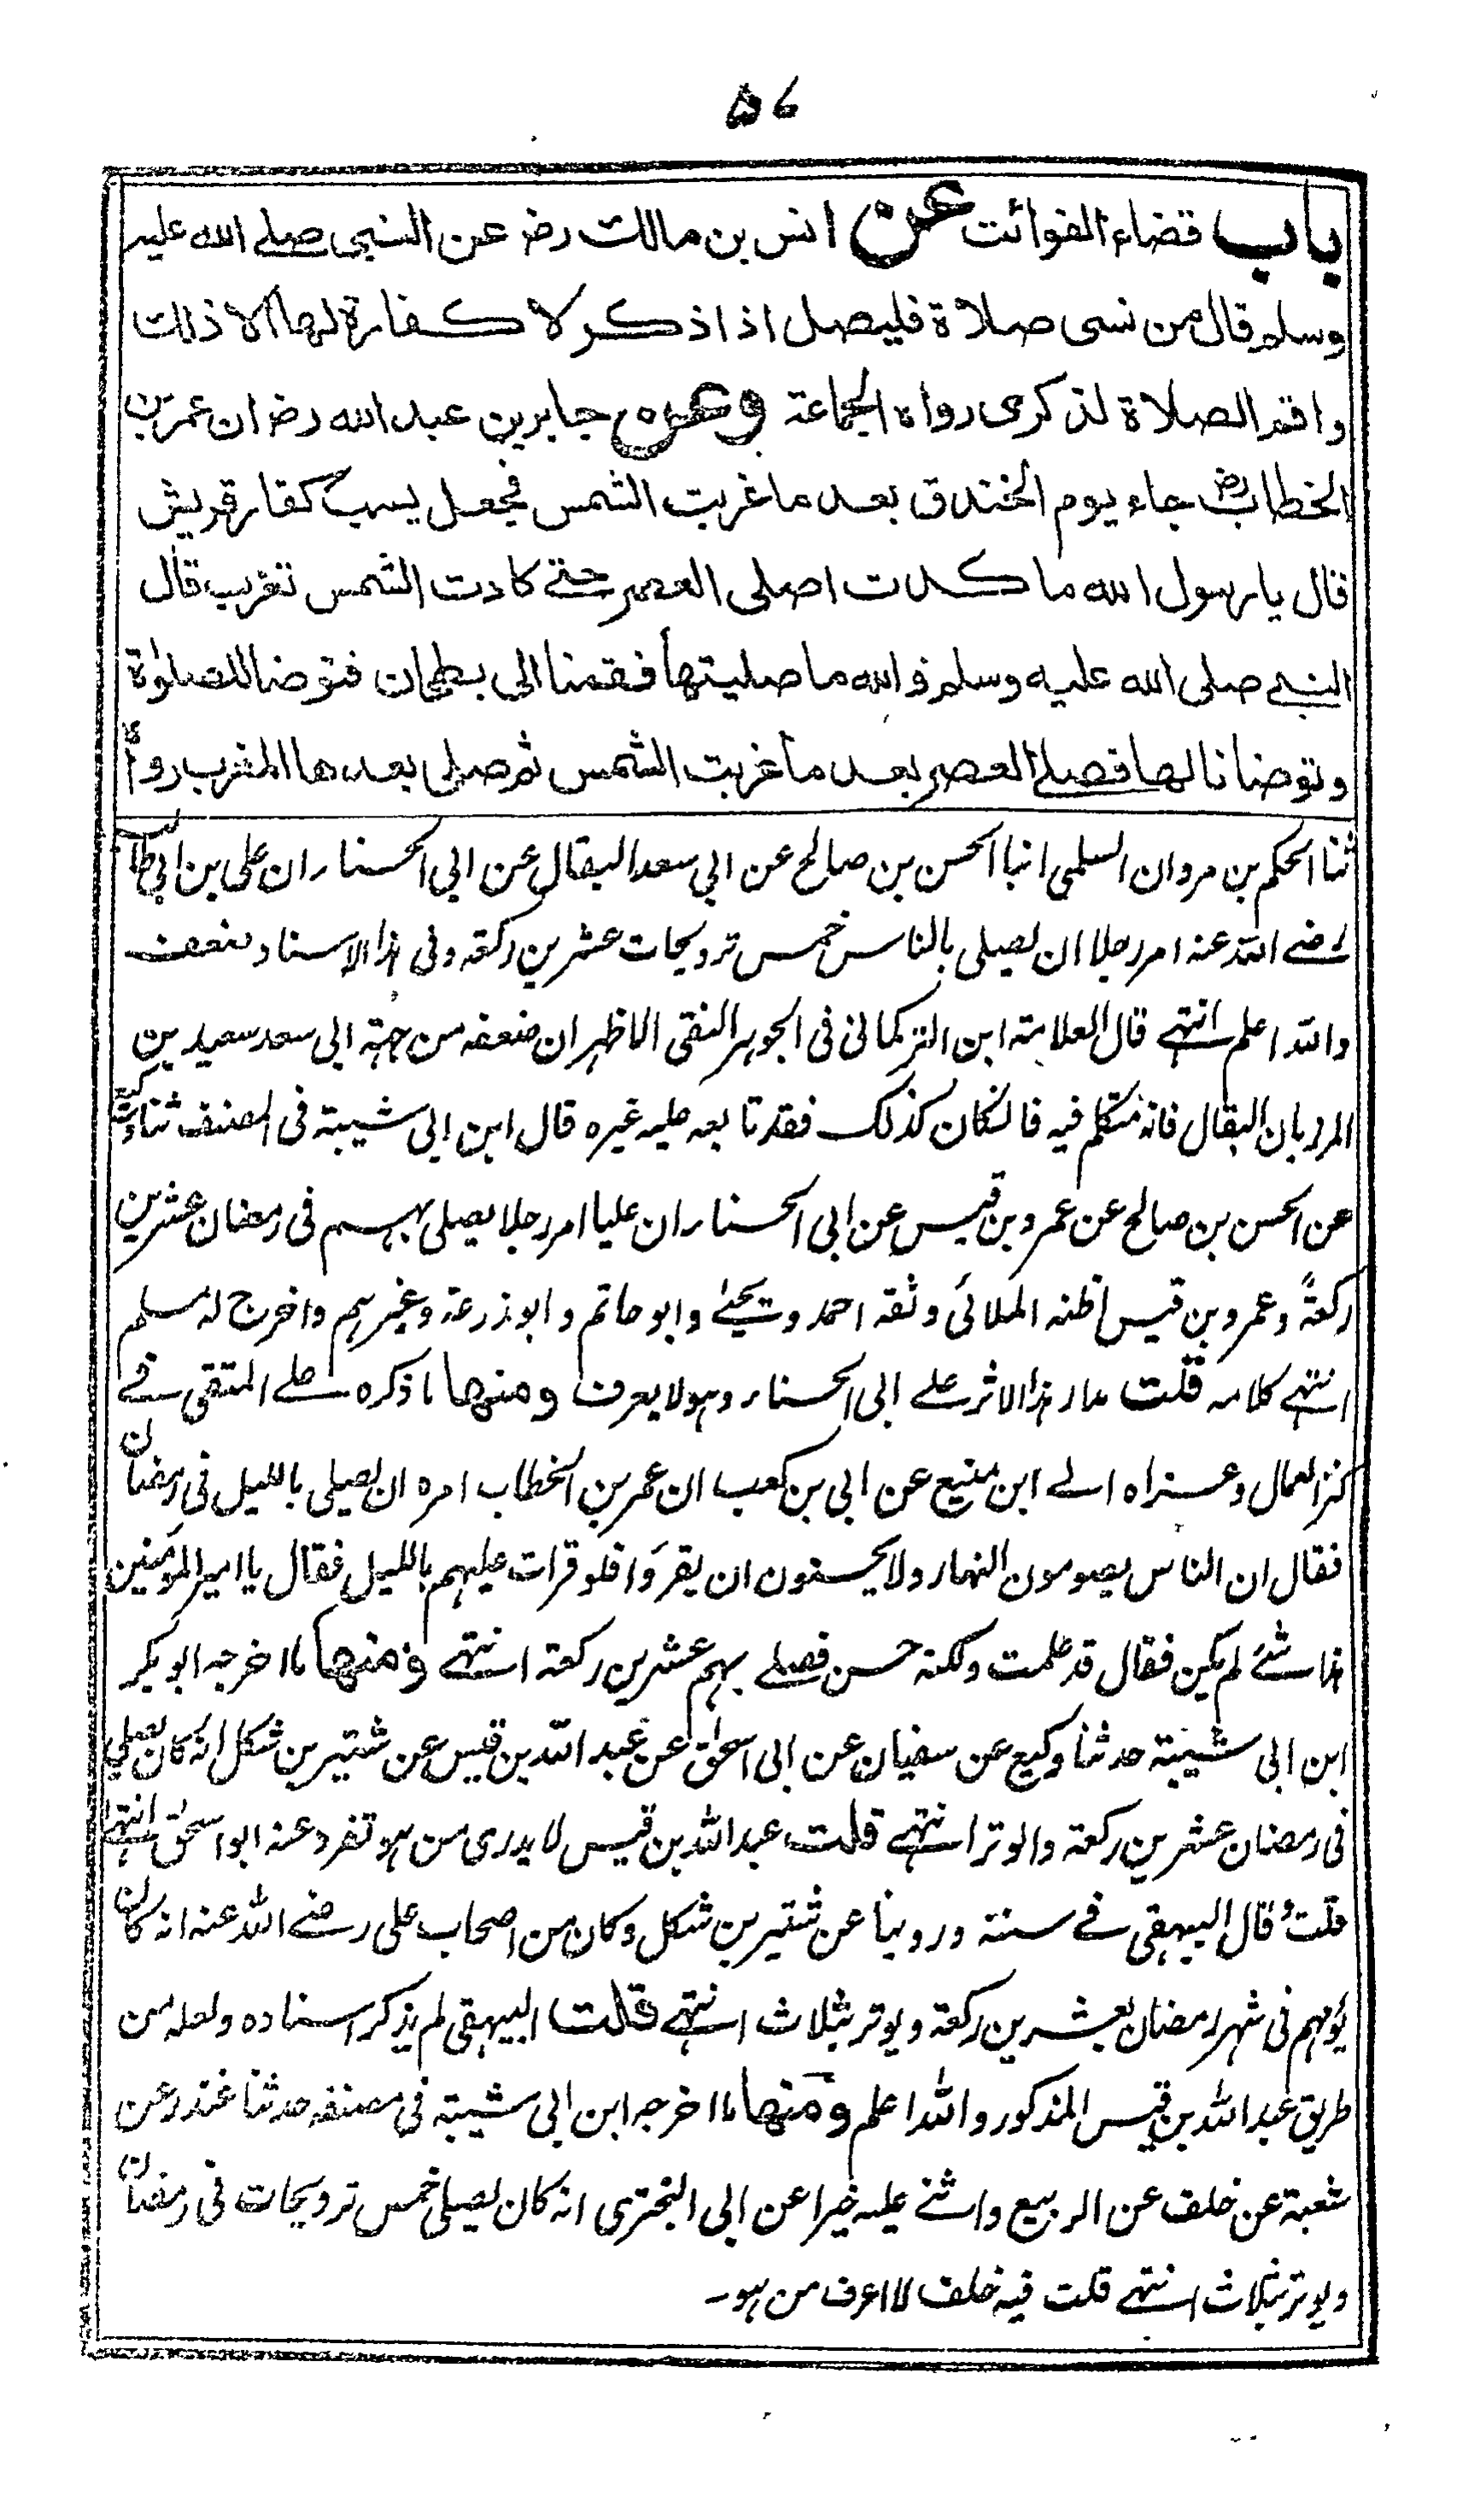 ۵۷
باب قضاء الفوائت عن انس بن مالك رض عن النبي صلى الله عليه
وسلم قال من نسى صلاة فليصل اذا ذكر لا كفارة لها الا ذلك
واقم الصلاة لذكرى رواه الجماعة وعن جابر بن عبد الله رض ان عمر بن
الخطاب رض جاء يوم الخندق بعد ما غربت الشمس فجعل يسب كفار قريش
قال يا رسول الله ما كدت اصلى العصر حتى كادت الشمس تغرب قال
النبي صلى الله عليه وسلم فوالله ما صليتها فقمنا الى بطحان فتوضا للصلوٰة
وتوضانا لها فصلى العصر بعد ما غربت الشمس ثم صلى بعدها المغرب رواه
ثنا الحكم بن مروان السلمى انبا الحسن بن صالح عن ابي سعد البقال عن ابي الحسناء ان على بن ابي طالب
رضى الله عنه امر رجلا ان يصلى بالناس خمس ترويحات عشرين ركعة وفى هذا الاسناد ضعف
والله اعلم انتهى قال العلامة ابن التركمانى فى الجوهر النقى الاظهر ان ضعفه من جهة ابي سعد سعيد بن
المرزبان البقال فانه متكلم فيه فانكان كذلك فقد تابعه عليه غيره قال ابن ابي شيبة فى المصنف ثنا وكيع
عن الحسن بن صالح عن عمرو بن قيس عن ابي الحسناء ان عليا امر رجلا يصلى بهم فى رمضان عشرين
ركعةً وعمرو بن قيس اظنه الملائى وثقه احمد ويحيى وابو حاتم وابو زرعة وغيرهم واخرج له مسلم
انتهى كلامه قلت مدار هذا الاثر على ابي الحسناء وهو لا يعرف ومنها ما ذكره على المتقى فى
كنز العمال وعزاه الى ابن منيع عن ابي بن كعب ان عمر بن الخطاب امره ان يصلى بالليل فى رمضان
فقال ان الناس يصومون النهار ولا يحسنون ان يقرؤا فلو قرات عليهم بالليل فقال يا امير المؤمنين
هذا شئ لم يكن فقال قد علمت ولكنه حسن فصلى بهم عشرين ركعة انتهى ومنها ما اخرجه ابو بكر
ابن ابي شيبة حدثنا وكيع عن سفيان عن ابي اسحٰق عن عبد الله بن قيس عن شتير بن شكل انه كان يصلى
فى رمضان عشرين ركعة والوتر انتهى قلت عبد الله بن قيس لا يدرى من هو تفرد عنه ابو اسحٰق انتهى
قلت قال البيهقى فى سننه وروينا عن شتير بن شكل وكان من اصحاب على رضى الله عنه انه كان
يؤمهم فى شهر رمضان بعشرين ركعة ويوتر بثلاث انتهى قلت البيهقى لم يذكر اسناده ولعله من
طريق عبد الله بن قيس المذكور والله اعلم ومنها ما اخرجه ابن ابي شيبة فى مصنفه حدثنا غندر عن
شعبة عن خلف عن الربيع واثنى عليه خيرا عن ابي البخترى انه كان يصلى خمس ترويحات فى رمضان
ويوتر بثلاث انتهى قلت فيه خلف لا اعرف من هو۔